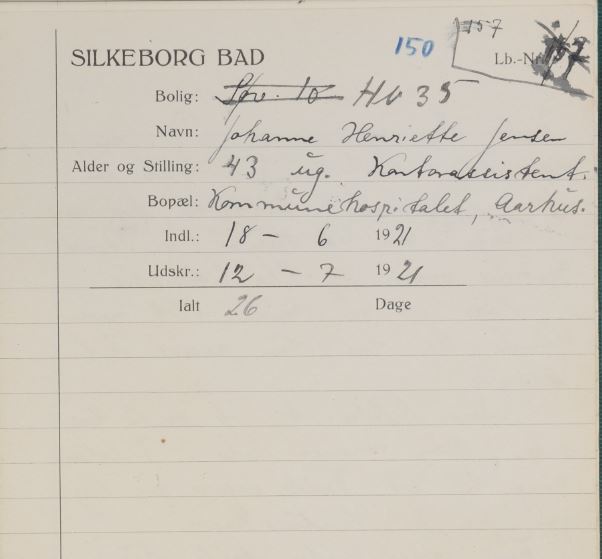 157
150 Lb.-Nr. 157
SILKEBORG BAD
Bolig: Spv. 10 H.v 35
Navn: Johanne Henriette Jensen
Alder og Stilling: 43 ug. Kontorassistent.
Bopæl: Kommunehospitalet, Aarhus.
Indl.: 18 - 6 1921
Udskr.: 12 - 7 1921
Ialt 26 Dage